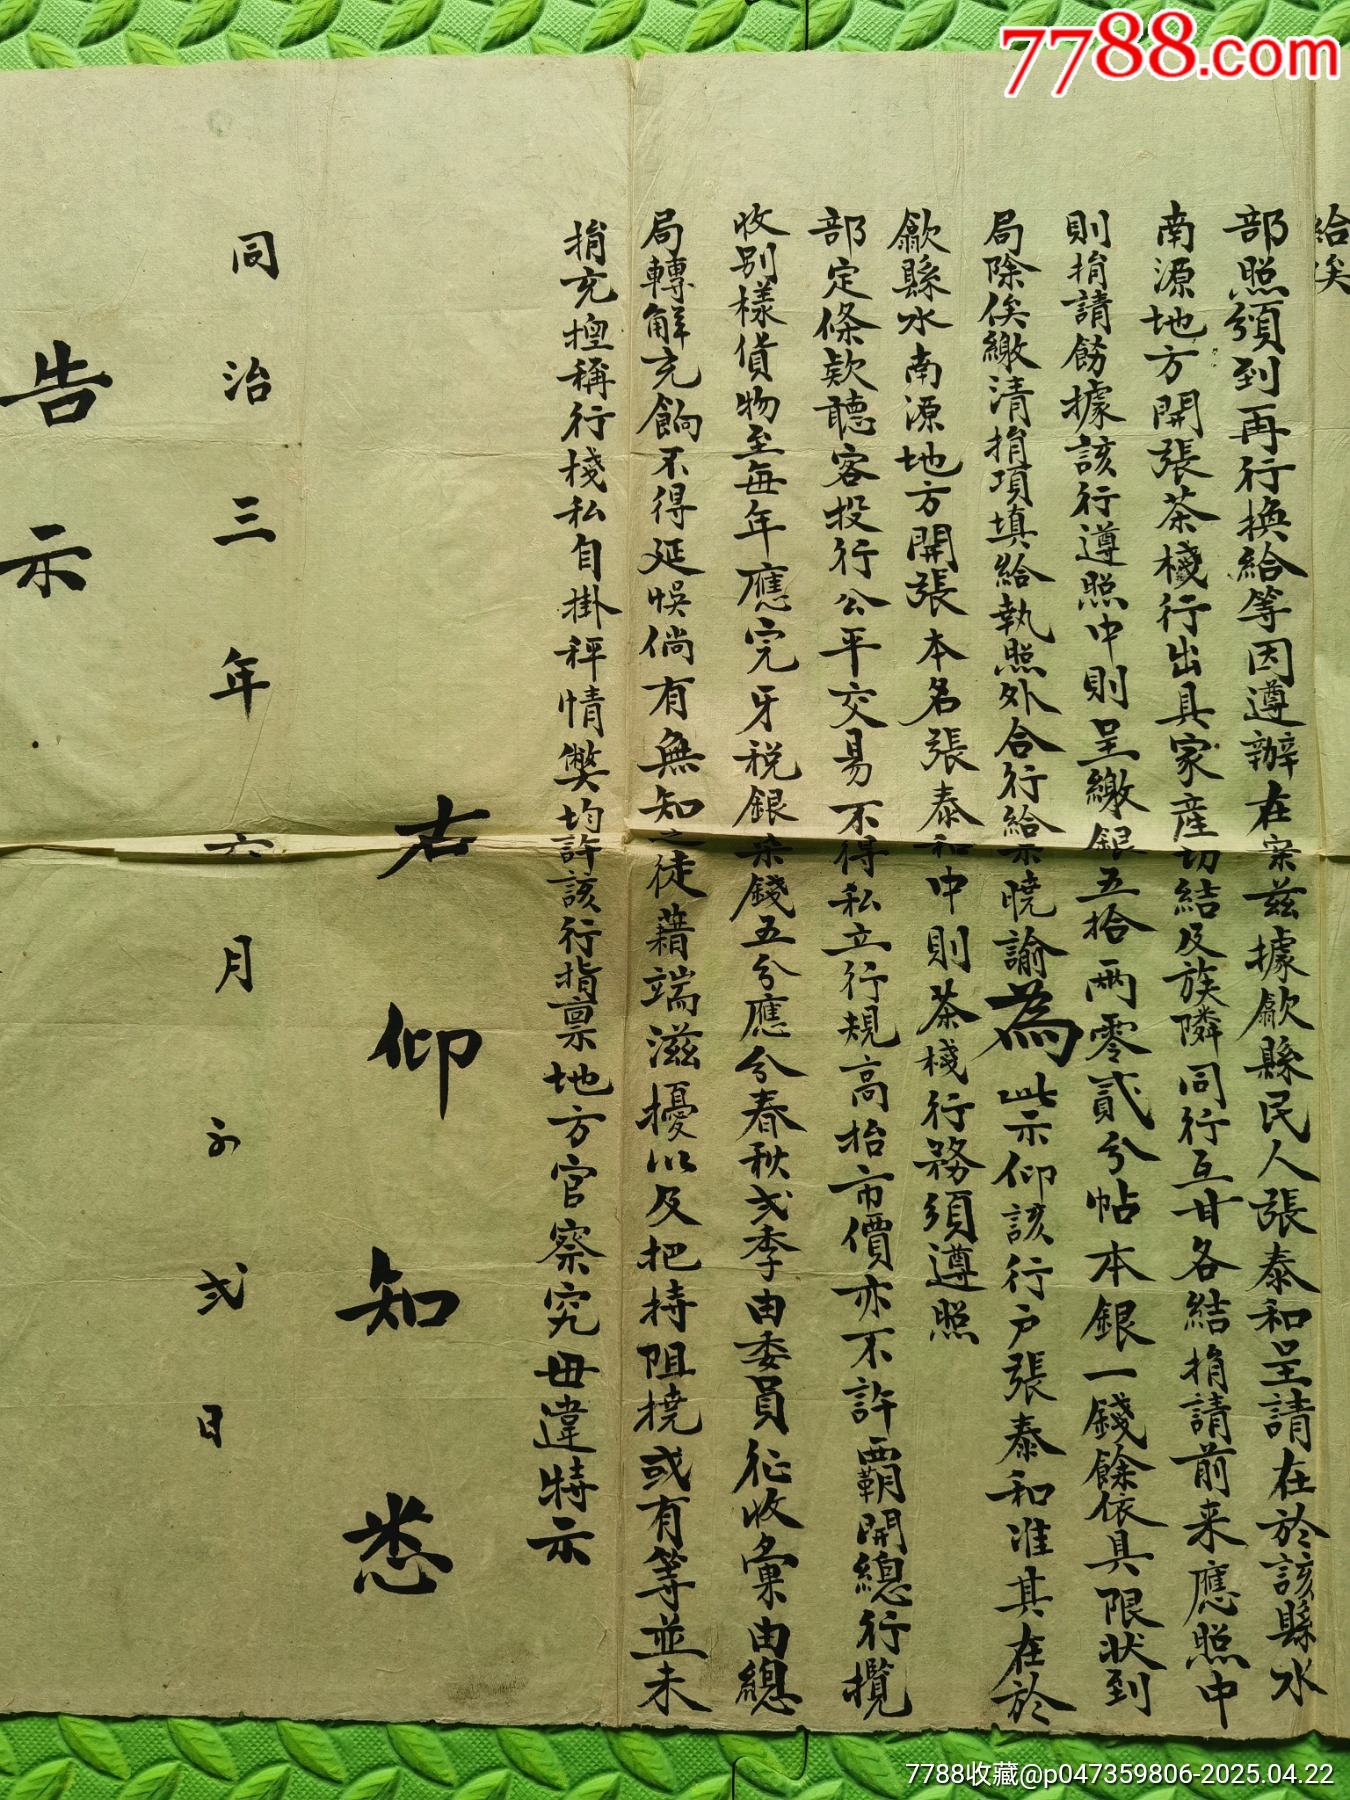 7788.com
給 俟
部照頒到再行換給等因遵辦在案兹據歙縣民人張泰和呈請在於該縣水
南源地方開張茶棧行出具家產切結及族隣同行互甘各結捐請前来應照中
則捐請飭據該行遵照中則呈繳銀五拾兩零貳分帖本銀一錢餘依具限狀到
局除俟繳清捐項填給執照外合行給示曉諭為此示仰該行户張泰和准其在於
歙縣水南源地方開張本名張泰和中則茶棧行務須遵照
部定條欵聽客投行公平交易不得私立行規高抬市價亦不許覇開總行攬
收别樣貨物至每年應完牙税銀柒錢五分應分春秋弍季由委員征收彙由總
局轉解充餉不得延悞倘有無知之徒藉端滋擾以及把持阻撓或有等並未
捐充擅稱行棧私自掛秤情弊均許該行指禀地方官察究毋違特示
右仰知悉
同治三年六月初弍日
告示
7788收藏@p047359806-2025.04.22